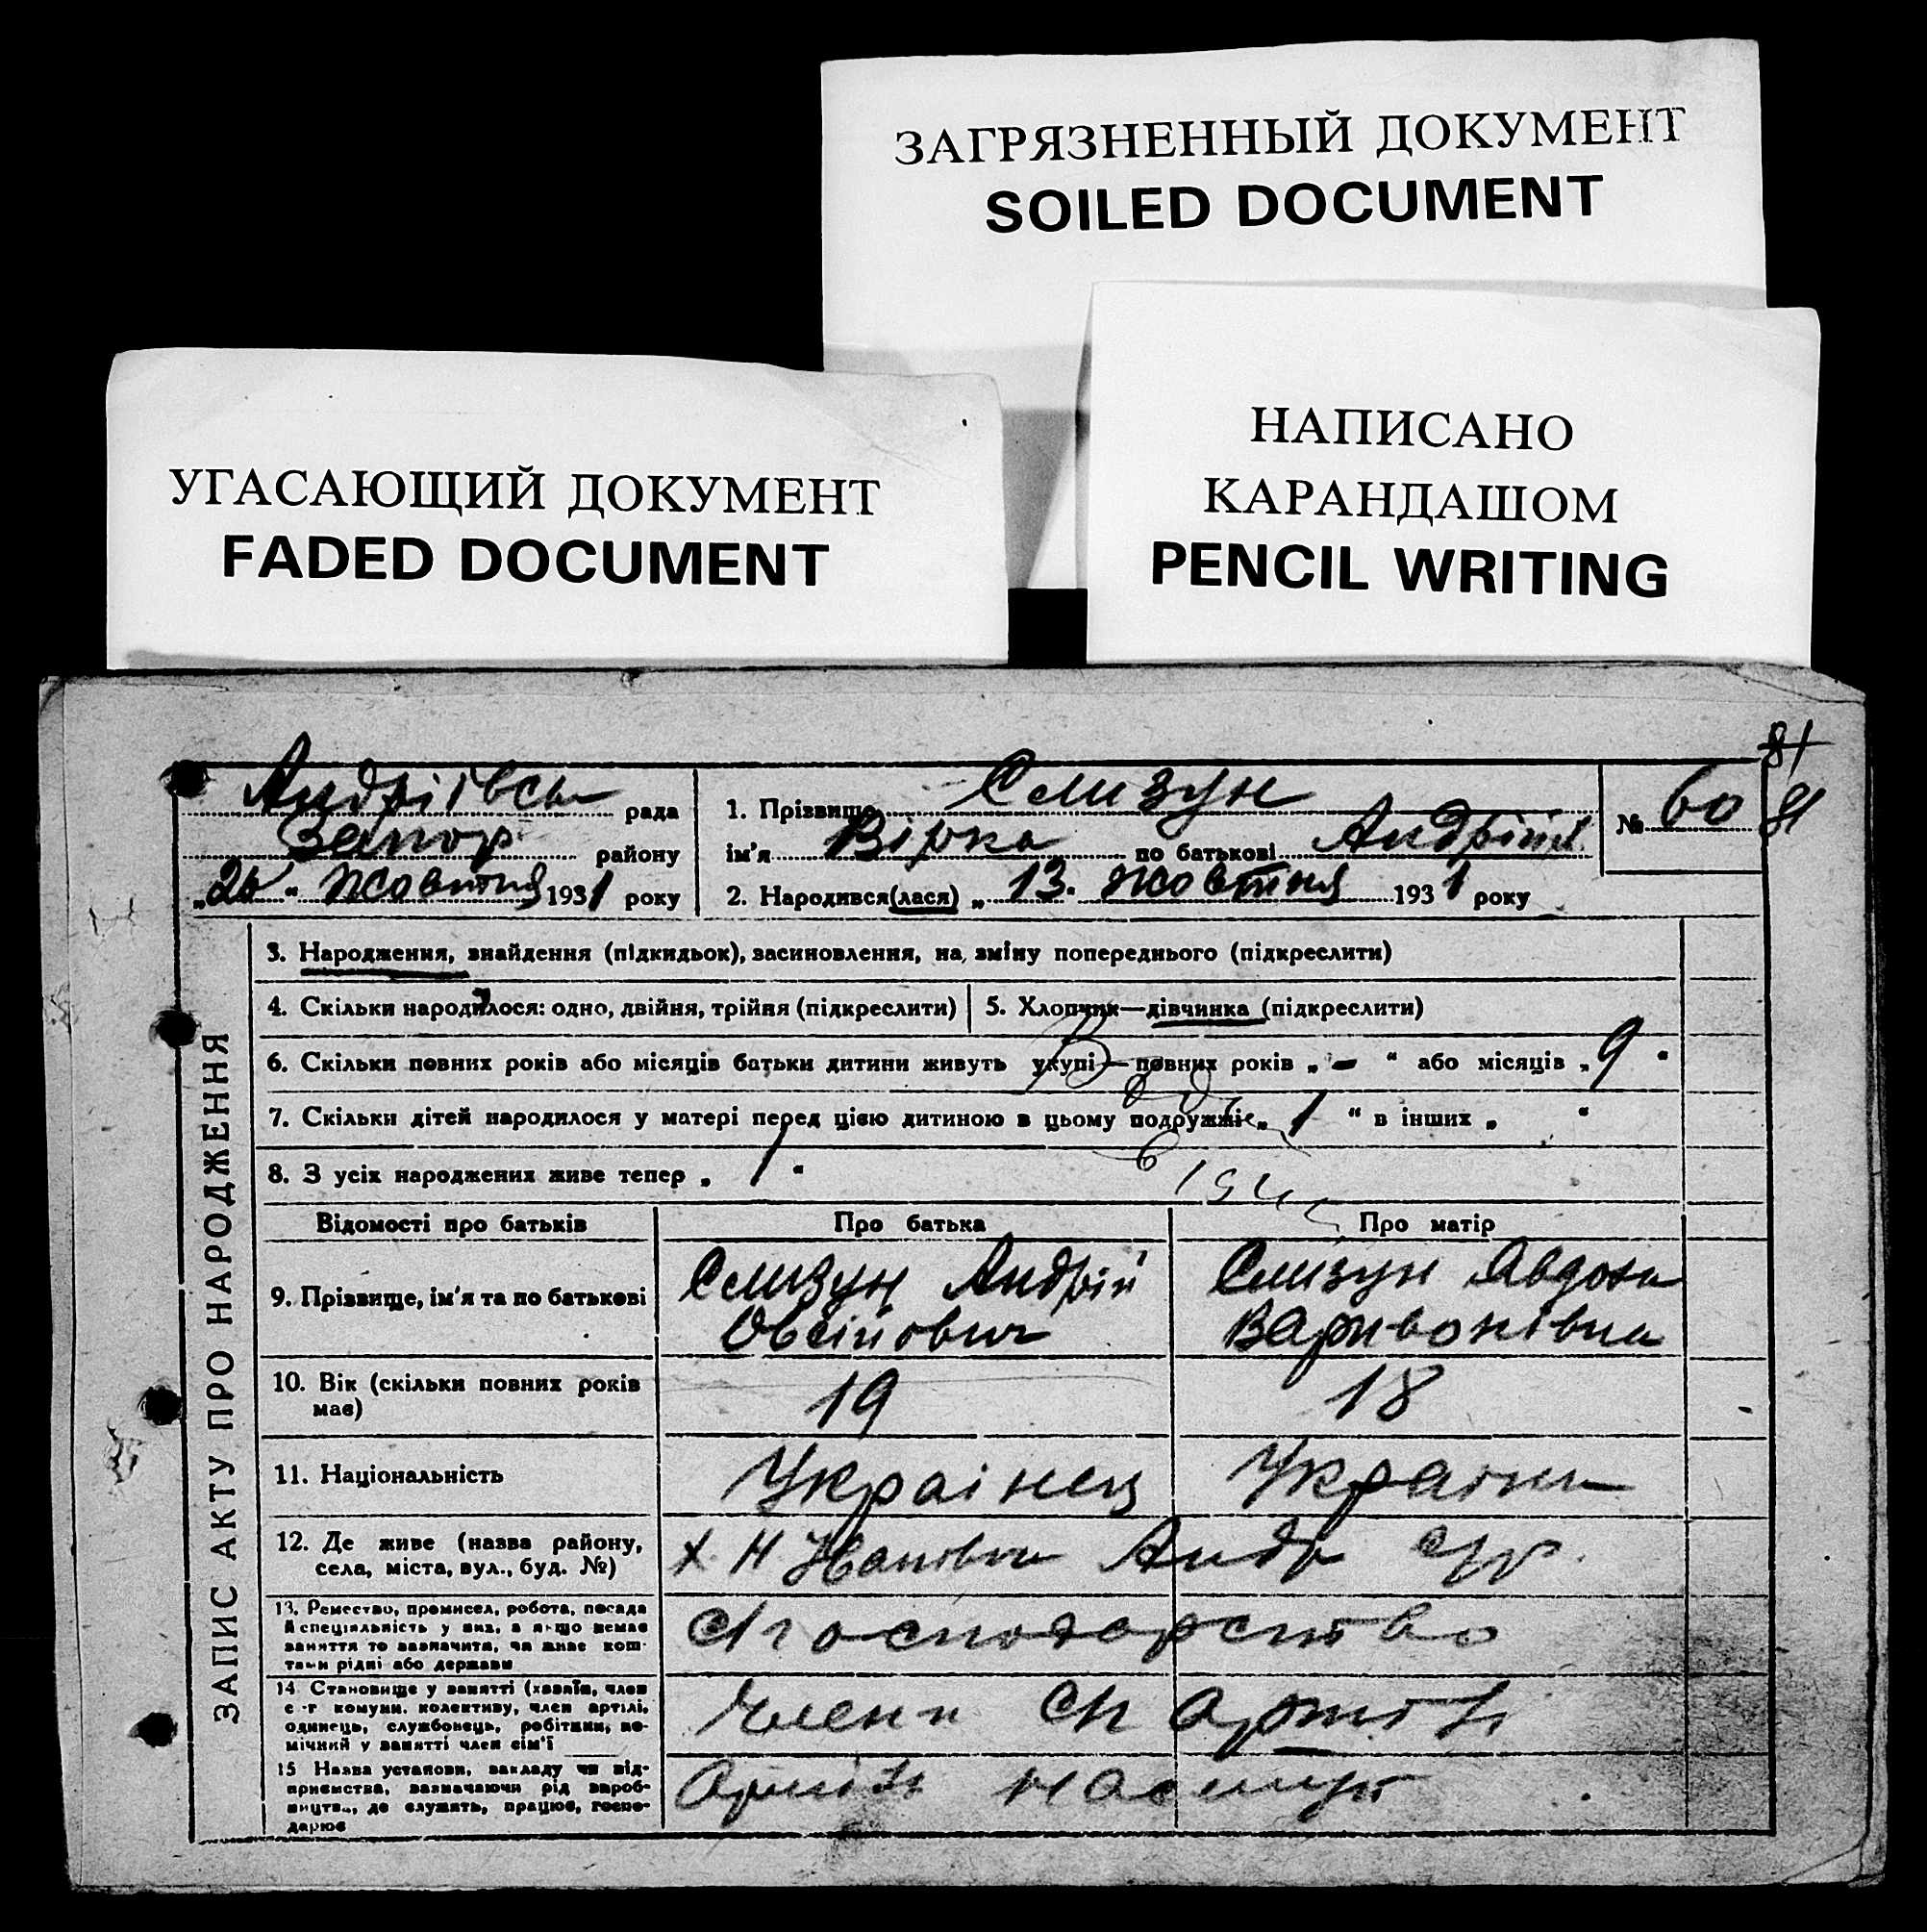 ЗАГРЯЗНЕННЫЙ ДОКУМЕНТ
SOILED DOCUMENT
НАПИСАНО
КАРАНДАШОМ
PENCIL WRITING
УГАСАЮЩИЙ ДОКУМЕНТ
FADED DOCUMENT
81
Андріївсь рада
Запор району
"20" жовтня 1931 року
1. Прізвище Слизун
ім'я Вірка по батькові Андріїв
2. Народився(лася) „ 13. жовтня 1931 року
№ 60
81
ЗАПИС АКТУ ПРО НАРОДЖЕННЯ
3. Народження, знайдення (підкидьок), засиновлення, на зміну попереднього (підкреслити)
4. Скільки народилося: одно, двійня, трійня (підкреслити)
5. Хлопчик—дівчинка (підкреслити)
6. Скільки повних років або місяців батьки дитини живуть укупі— повних років „ - “ або місяців „ 9 "
7. Скільки дітей народилося у матері перед цією дитиною в цьому подружжі „ 1 “ в інших „ “
8. З усіх народжених живе тепер „ 1 "
Відомості про батьків
Про батька
Про матір
9. Прізвище, ім'я та по батькові
Слизун Андрій
Овсійович
Слизун Авдотя
Варивонівна
10. Вік (скільки повних років
має)
19
18
11. Національність
Українец
Україн
12. Де живе (назва району,
села, міста, вул., буд. №)
х. Н Іванівка Андр с/р.
13. Ремество, промисел, робота, посада
й спеціяльність у них, а якщо немає
заняття то зазначити, чи живе кош-
тами рідні або держави
с/господарство
14 Становище у занятті (хазяїн, член
с -г комуни, колективу, член артілі,
одинець, службовець, робітник, по-
мічний у занятті член сім'ї
Члени с/г артіл
15 Назва установи, закладу чи під-
приємства, зазначаючи рід вироб-
ництва, де служить, працює, госпо-
дарює
Артіль